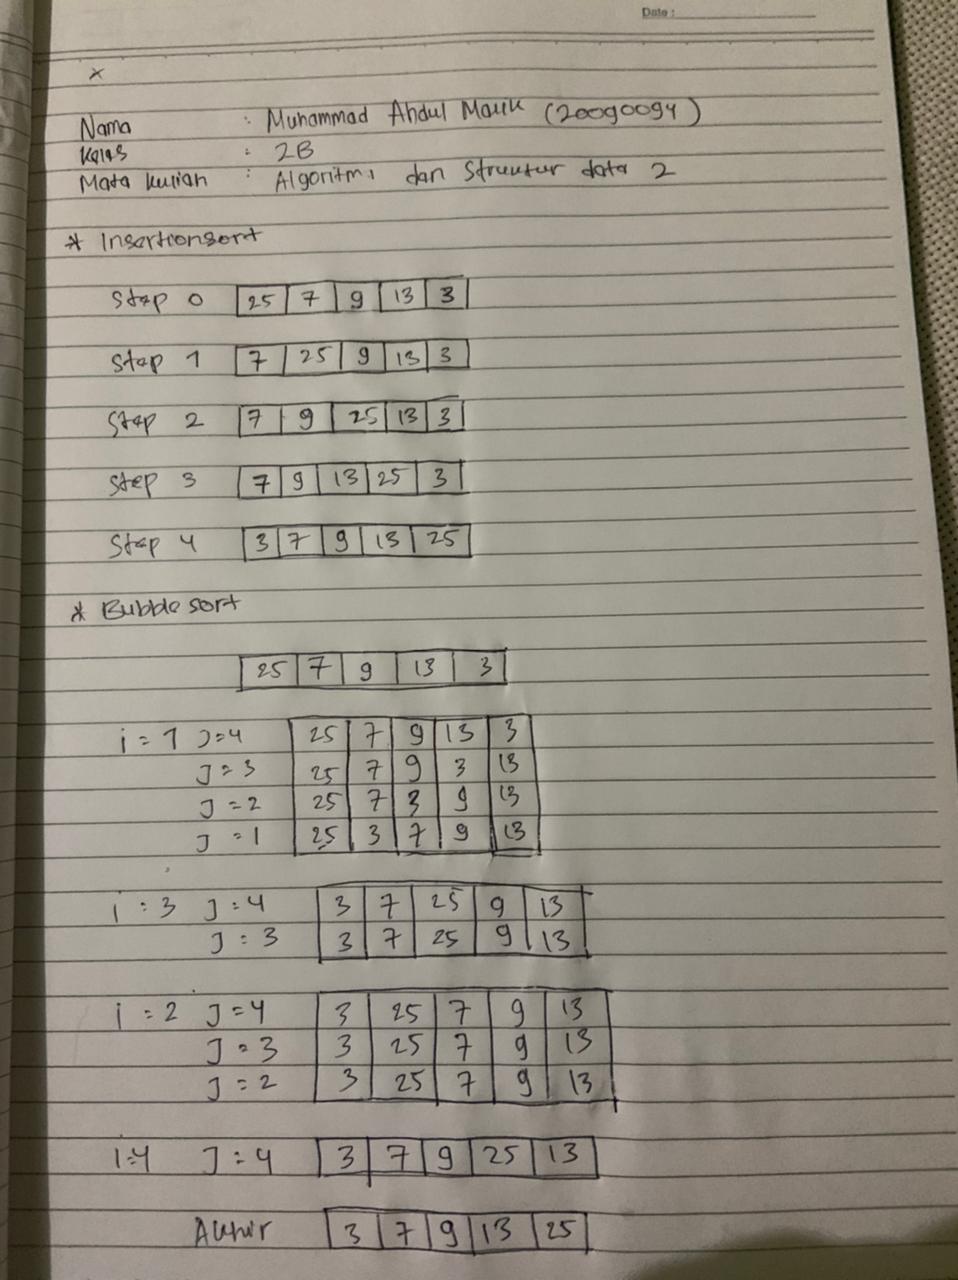 Date :
x
Nama : Muhammad Abdul Malik (20090094)
Kelas : 2B
Mata kuliah : Algoritma dan Struktur data 2
* Insertionsort
Step 0 25 7 9 13 3
Step 1 7 25 9 13 3
Step 2 7 9 25 13 3
Step 3 7 9 13 25 3
Step 4 3 7 9 13 25
* Bubble sort
25 7 9 13 3
i = 1 J=4 25 7 9 13 3
J = 3 25 7 9 3 13
J = 2 25 7 3 9 13
J = 1 25 3 7 9 13
i : 3 J : 4 3 7 25 9 13
J : 3 3 7 25 9 13
i = 2 J = 4 3 25 7 9 13
J = 3 3 25 7 9 13
J = 2 3 25 7 9 13
i=4 J = 4 3 7 9 25 13
Akhir 3 7 9 13 25